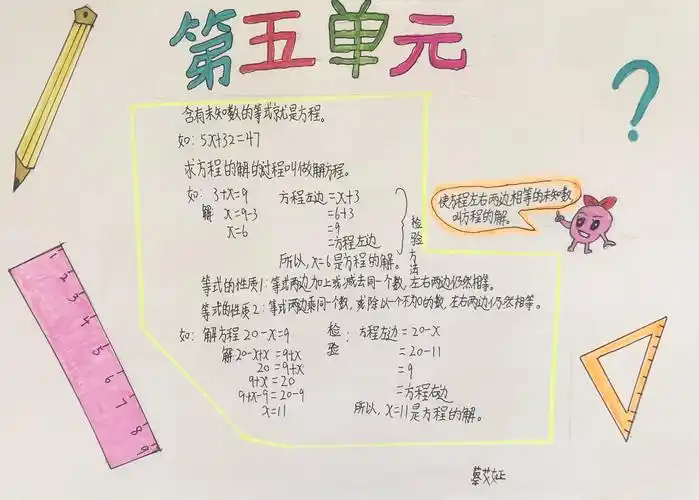 第五单元
含有未知数的等式就是方程。
如: 5x+32=47
求方程的解的过程叫做解方程。
如: 3+x=9
解 x=9-3
x=6
方程左边=x+3
=6+3
=9
=方程左边
所以, x=6是方程的解。
检验方法
使方程左右两边相等的未知数
叫方程的解。
等式的性质1: 等式两边加上或减去同一个数, 左右两边仍然相等。
等式的性质2: 等式两边乘同一个数, 或除以一个不为0的数, 左右两边仍然相等。
如: 解方程 20-x=9
解20-x+x=9+x
20=9+x
9+x=20
9+x-9=20-9
x=11
检验: 方程左边=20-x
=20-11
=9
=方程右边
所以, x=11是方程的解。
1
2
3
4
5
6
7
8
9